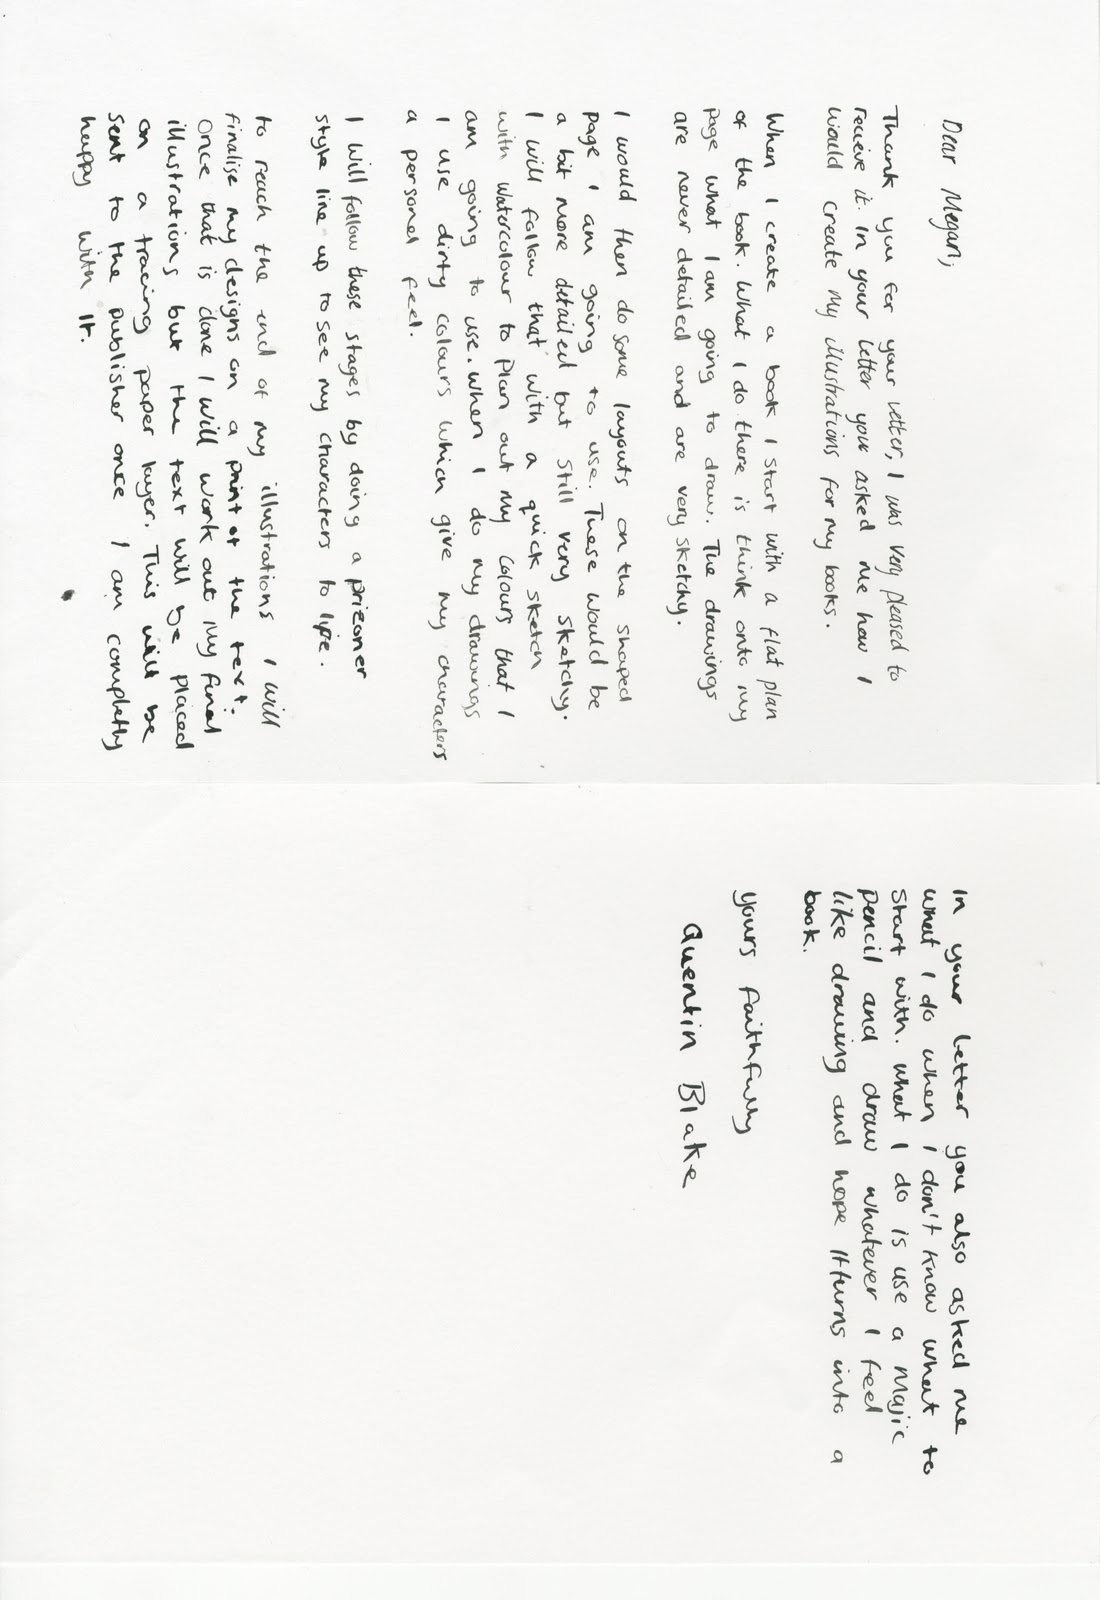 Dear Megan,
Thank you for your letter, I was very pleased to
recieve it. In your letter you asked me how I
would create my illustrations for my books.
When I create a book I start with a flat plan
of the book. What I do there is think onto my
page what I am going to draw. The drawings
are never detailed and are very sketchy.
I would then do some layouts on the shaped
page I am going to use. These would be
a bit more detailed but still very sketchy.
I will follow that with a quick sketch
with watercolour to plan out my colours that I
am going to use. When I do my drawings
I use dirty colours which give my characters
a personal feel.
I will follow these stages by doing a prizoner
style line up to see my characters to life.
to reach the end of my illustrations I will
finalise my designs on a print of the text.
Once that is done I will work out my final
illustrations but the text will be placed
on a tracing paper layer. This will be
sent to the publisher once I am completly
happy with it.
In your letter you also asked me
what I do when I don't know what to
start with. What I do is use a majic
pencil and draw whatever I feel
like drawing and hope it turns into a
book.
Yours faithfully
Quentin Blake